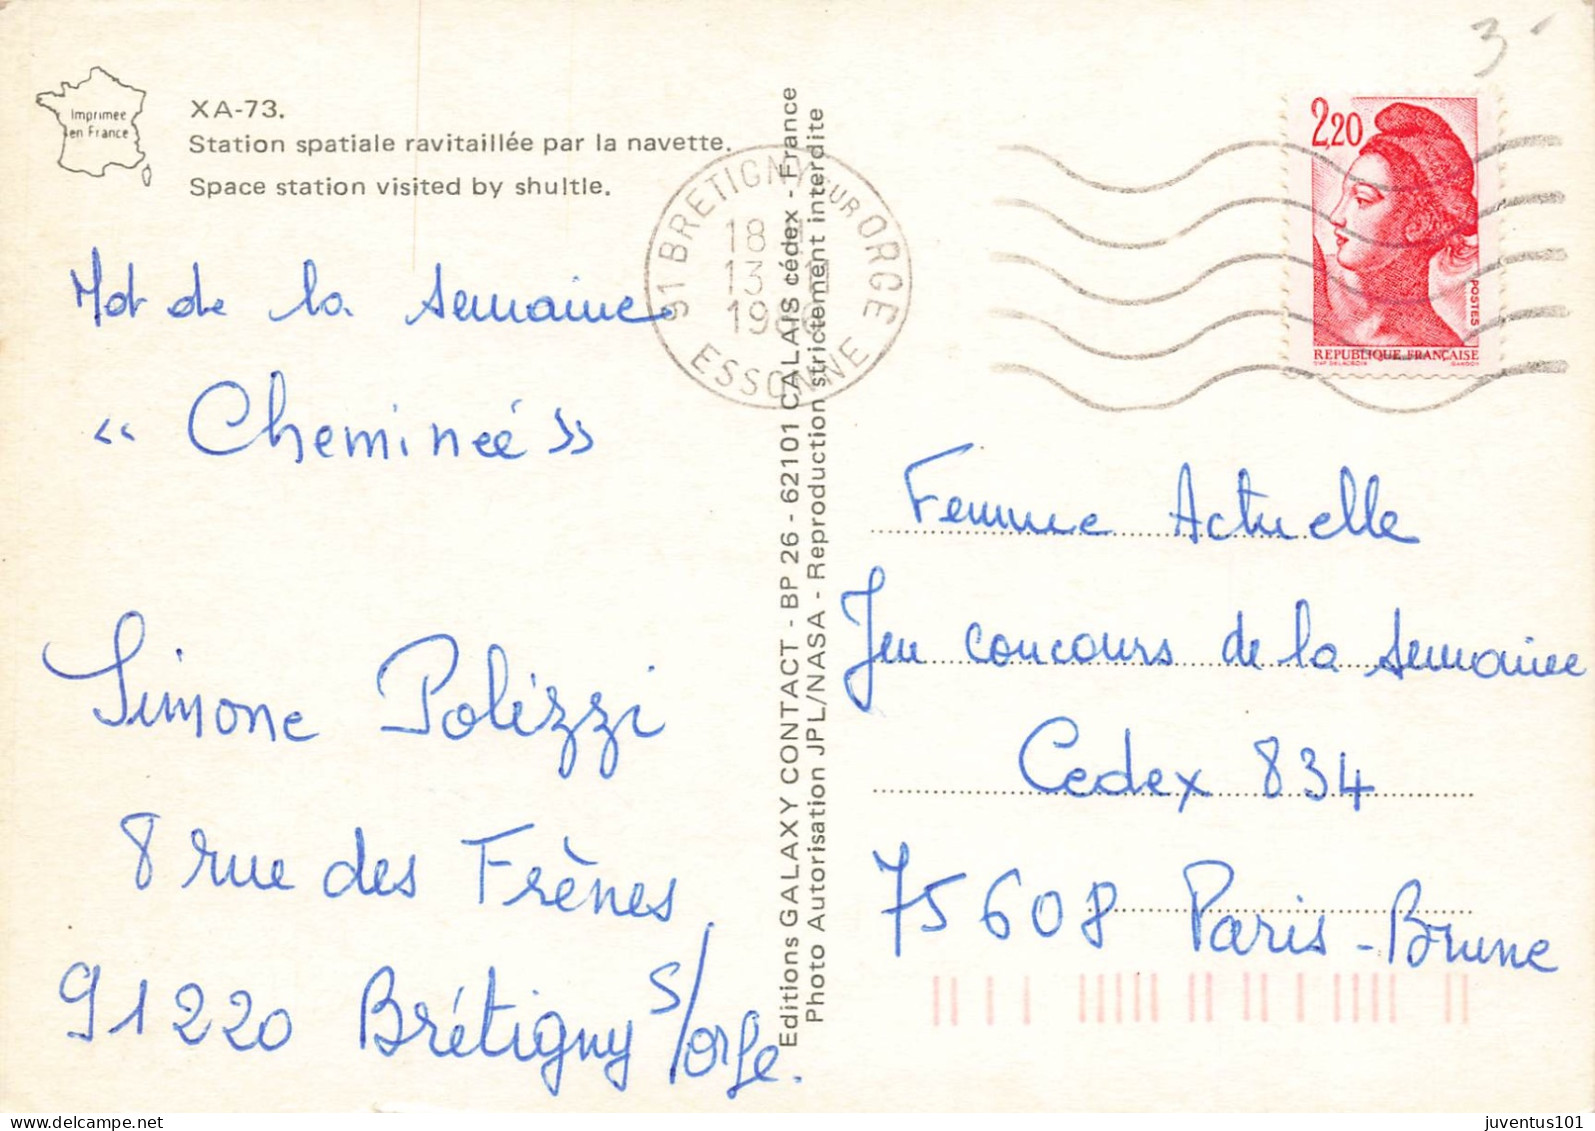 Imprimée
en France
XA-73.
Station spatiale ravitaillée par la navette.
Space station visited by shultle.
Mot de la semaine
« Cheminée »
Simone Polizzi
8 rue des Frènes
91220 Brétigny s/orge.
Editions GALAXY CONTACT - BP 26 - 62101 CALAIS cédex - France
Photo Autorisation JPL/NASA - Reproduction strictement interdite
91 BRETIGNY SUR ORGE
18 H
13
ESSONNE
3
2,20
POSTES
REPUBLIQUE FRANÇAISE
D'AP. DELACROIX GANDON
Femme Actuelle
Jeu concours de la semaine
Cedex 834
75608 Paris-Brune
juventus101